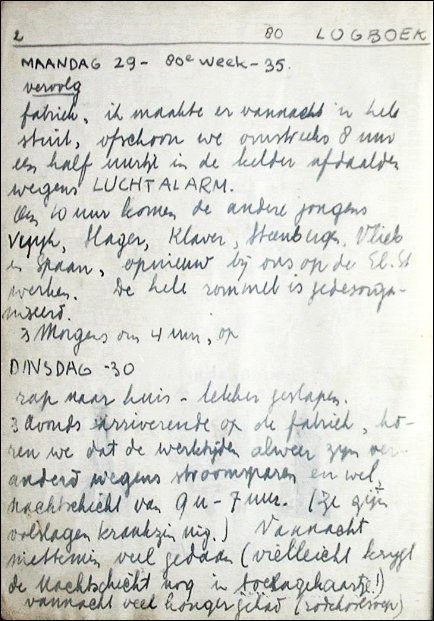 2 80 LOGBOEK
MAANDAG 29 - 80e week - 35.
vervolg
fabriek, ik maakte er vannacht 'n hele
stuit, ofschoon we omstreeks 8 uur
een half uurtje in de kelder afdaalden
wegens LUCHTALARM.
Om 10 uur komen de andere jongens
Hager, Klaver, Steenbergen, Vliek
en Spaan, opnieuw bij ons op de El. St
werken. De hele rommel is gedesorga-
niseerd.
's Morgens om 4 uur, op
DINSDAG - 30
rap naar huis - lekker geslapen.
's Avonds arriverende op de fabriek, ho-
ren we dat de werktijden alweer zijn ver-
anderd wegens stroomsparen en wel
nachtschicht van 9 u - 7 uur. (Ze zijn
volslagen krankzinnig.) Vannacht
niettemin veel gedaan (vielleicht krijgt
de nachtschicht nog 'n toeslagkaartje!)
vannacht veel honger gehad